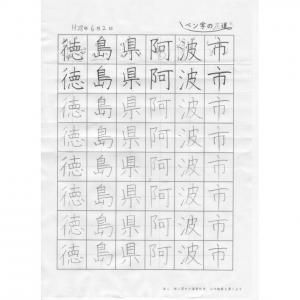 H28年6月2日
ペン字の
徳島県阿波市
徳島県阿波市
徳島県阿波市
徳島県阿波市
徳島県阿波市
徳島県阿波市
徳島県阿波市
徳島県阿波市